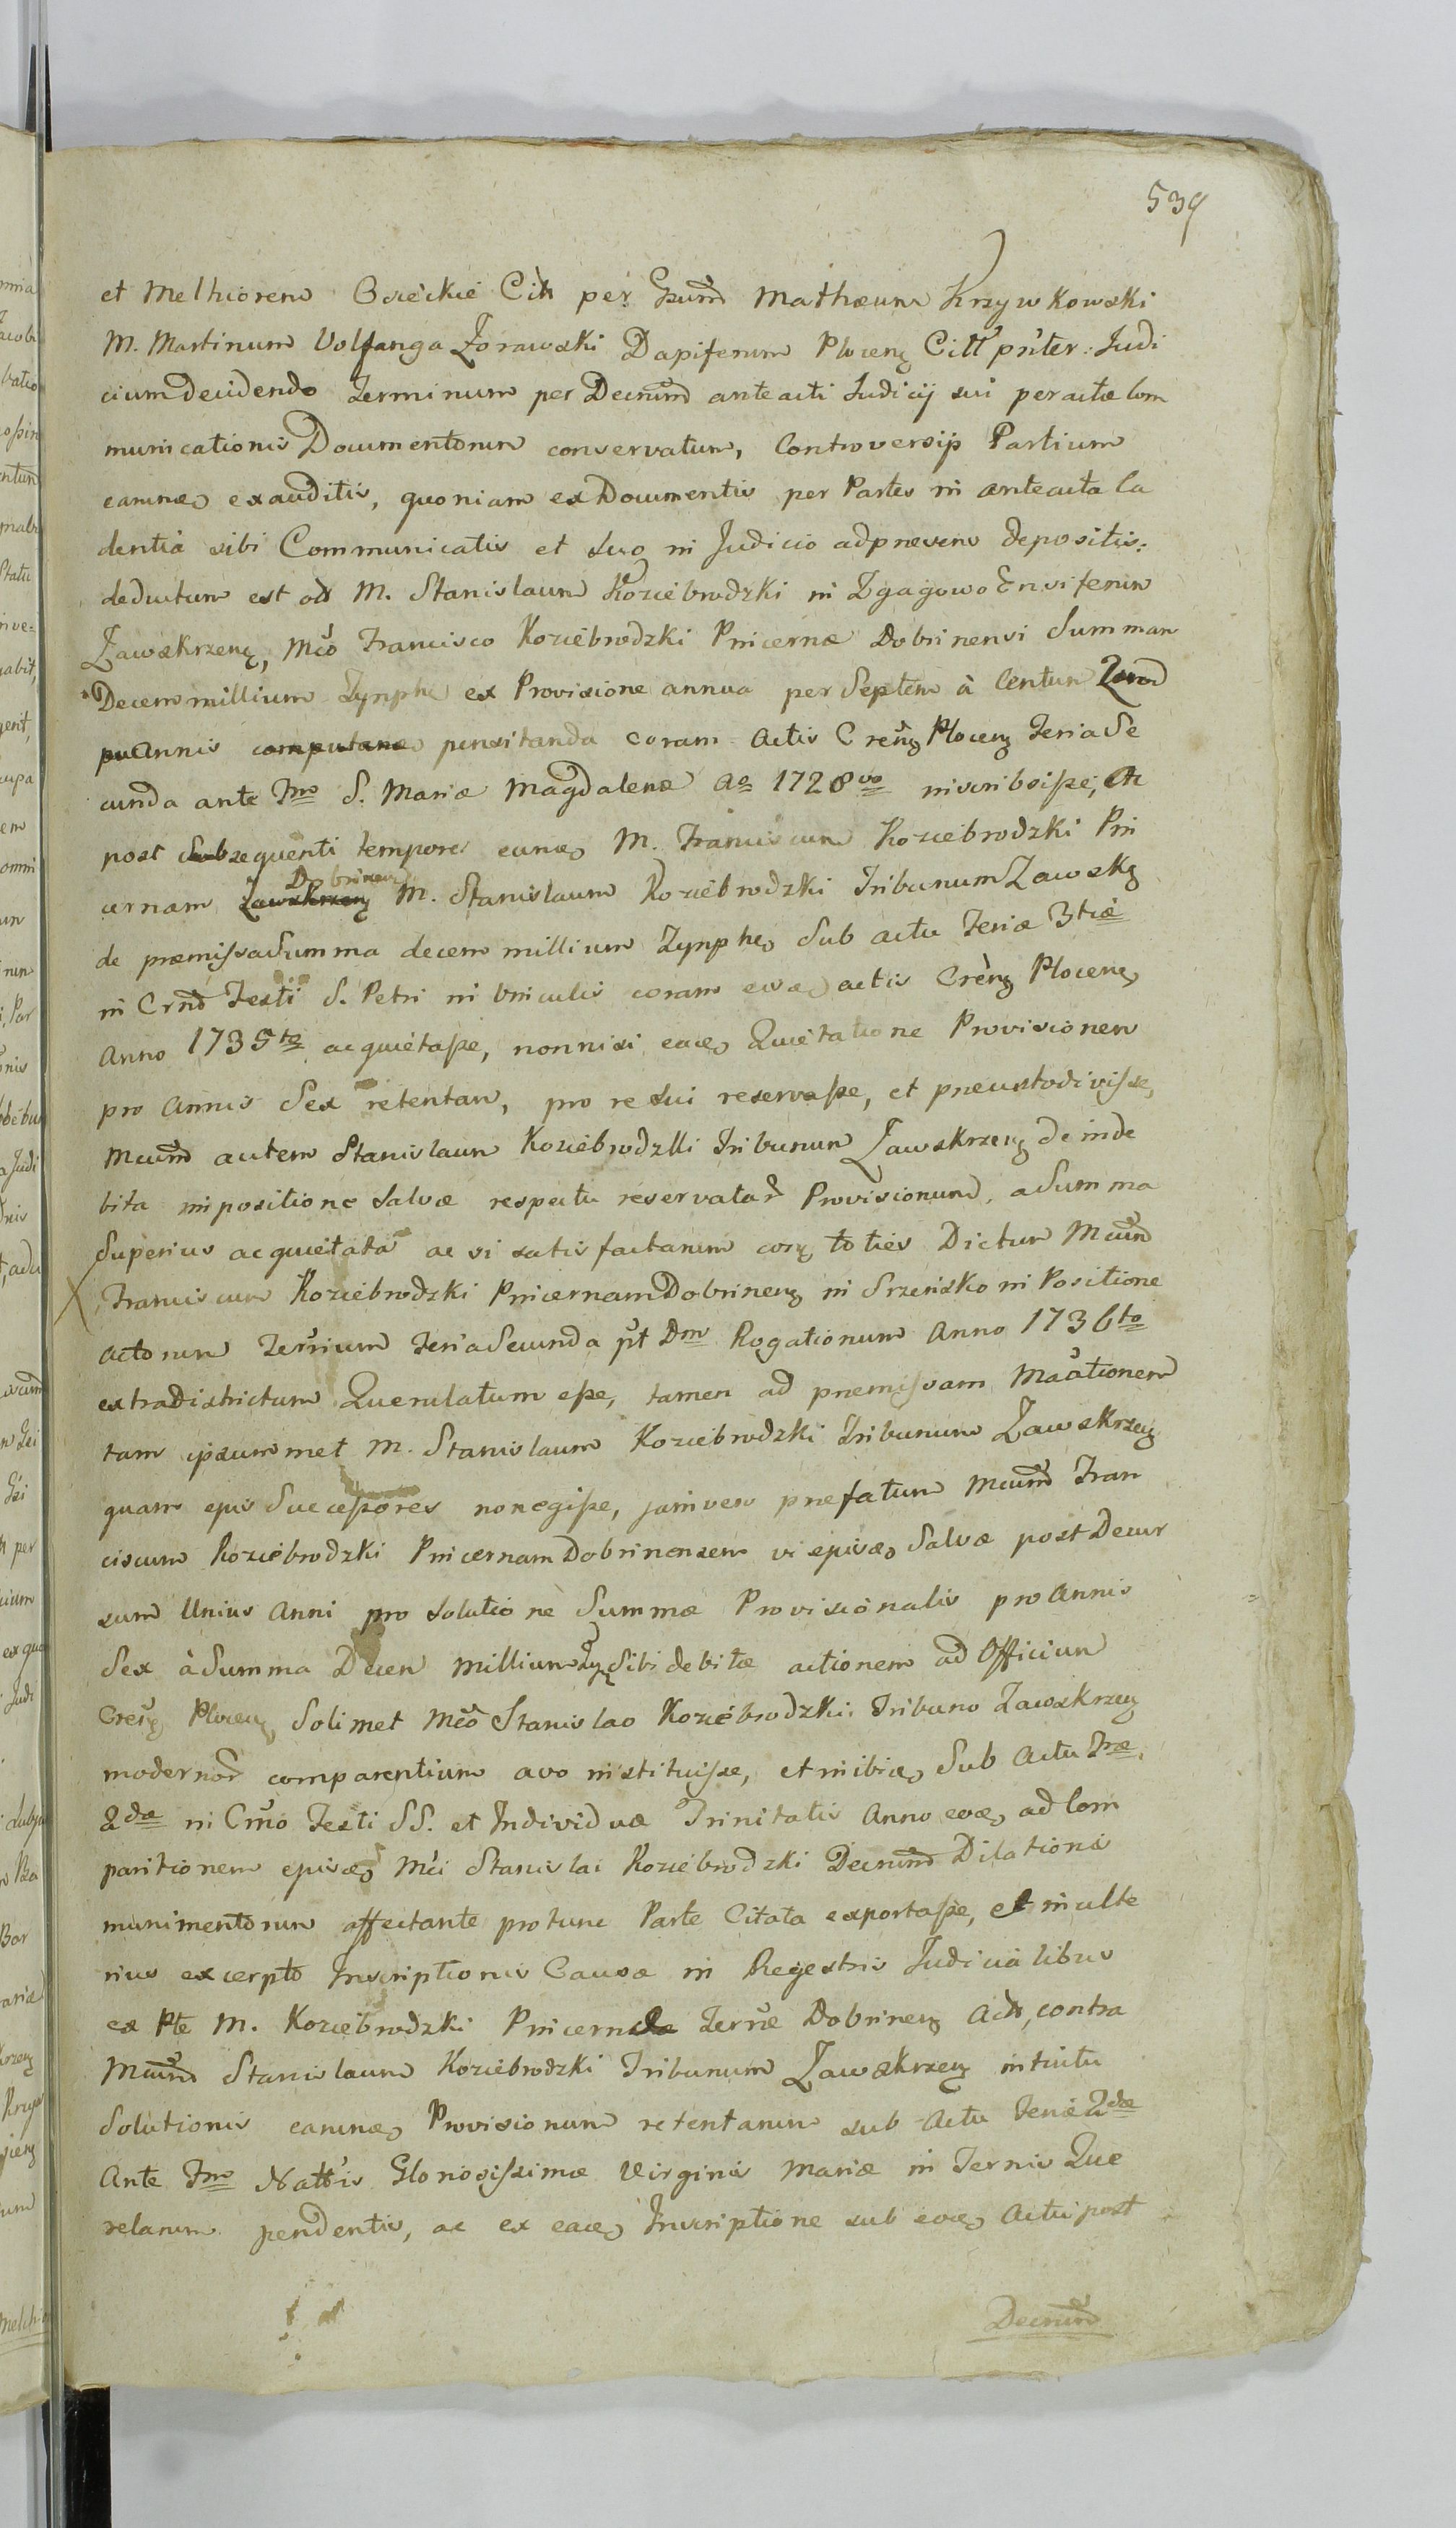 539
et Melhiorem Ozieckie Citt per Gsum Mathæum Krzywkowski
M. Martinum Volfanga Żorawski Dapiferum Plocenȝ Citt prter: Judi
cium decidendo Terminum per Decrum anteacti Judicij sui peractæ Com
municationis Documentorum conservatum, Controversijs Partium
earumqȝ exauditis, quoniam ex Documentis per Partes in anteacta Ca
dentia sibi Communicatis et suo in Judicio ad præsens depositis:
deductum est M. Stanislaum Koziebrodzki in Zgagowo Ensiferum
Zawskrzenȝ, Mco Francisco Koziebrodzki Pincernæ Dobrinensi Summam
Decem millium Tynphe ex Provisione annua per Septem à Centum
Annis computand pensitanda coram Actis Crenȝ Plocenȝ Feria Se
cunda ante Fm S. Mariæ Magdalenæ Ao 1728vo inscribsiſse, et
post subsequenti tempore eunqȝ M. Franciscum Koziebrodzki Pin
cernam Zawskrzenȝ Dobrinen M. Stanislaum Koziebrodzki Tribunum Zawskȝ
de præmiſsa Summa decem millium Tynpheo Sub actu Feriæ 3tiæ
in Crno Festi S. Petri in Vinculis coram eisqȝ actis Crenȝ Plocenȝ
Anno 1735to acquietaſse, nonnisi eaqȝ Quietatione Provisionem
pro Annis Sex retentam, pro re sui reservaſse, et præcustodiviſse,
Mcum autem Stanislaum Koziebrodzki Tribunum Zawskrzenȝ de inde
bita impositione salvæ respectu reservatar Provisionum, a Summa
Superius acquietata ac si satisfactarum corȝ toties Dictum Mcum
Franciscum Koziebrodzki Pincernam Dobrinenȝ in Srzeńsko in Positione
Actorum Terrium Feria Secunda pt Dm Rogationum Anno 1736to
extradistrictum Querulatum eſse, tamen ad præmiſsam Maationem
tam ipsummet M. Stanislaum Koziebrodzki Tribunum Zawskrzenȝ
quam ejus Succeſsores non egiſse, jamvero præfatum Mcum Fran
ciscum Koziebrodzki Pincernam Dobrinensem vi ejusqȝ Salvæ post Decur
sum Unius Anni pro solutione Summæ Provisionalis pro Annis
Sex à Summa Decem Millium Tyȝ sibi debitæ actionem ad Officium
Crenȝ Plocenȝ, Solimet Mco Stanislao Koziebrodzki Tribuno Zawskrzenȝ
modernor comparentium avo instituiſse, et inibiqȝ Sub Actu Fræ
2dæ in Crno Festi SS. et Individuæ Trinitatis Anno eoqȝ ad Com
paritionem ejusqȝ Mci Stanislai Koziebrodzki Decrum Dilationis
munimentorum affectante protunc Parte Citata exportaſse, et in ulte
rius excerpto Inscriptionis Causæ in Regestris Judicialibus
ex Pte M. Koziebrodzki Pincernæ Terræ Dobrinenȝ Actt, contra
Mcum Stanislaum Koziebrodzki Tribunum Zawskrzenȝ intuitu
Solutionis earumqȝ Provisionum retentarum sub Actu Feriæ 2dæ
Ante Fm Nattis Gloriosiſsimæ Virginis Mariæ in Ternis Que
relarum pendentis, ac ex eaqȝ Inscriptione sub eoqȝ Actu post
Decrum